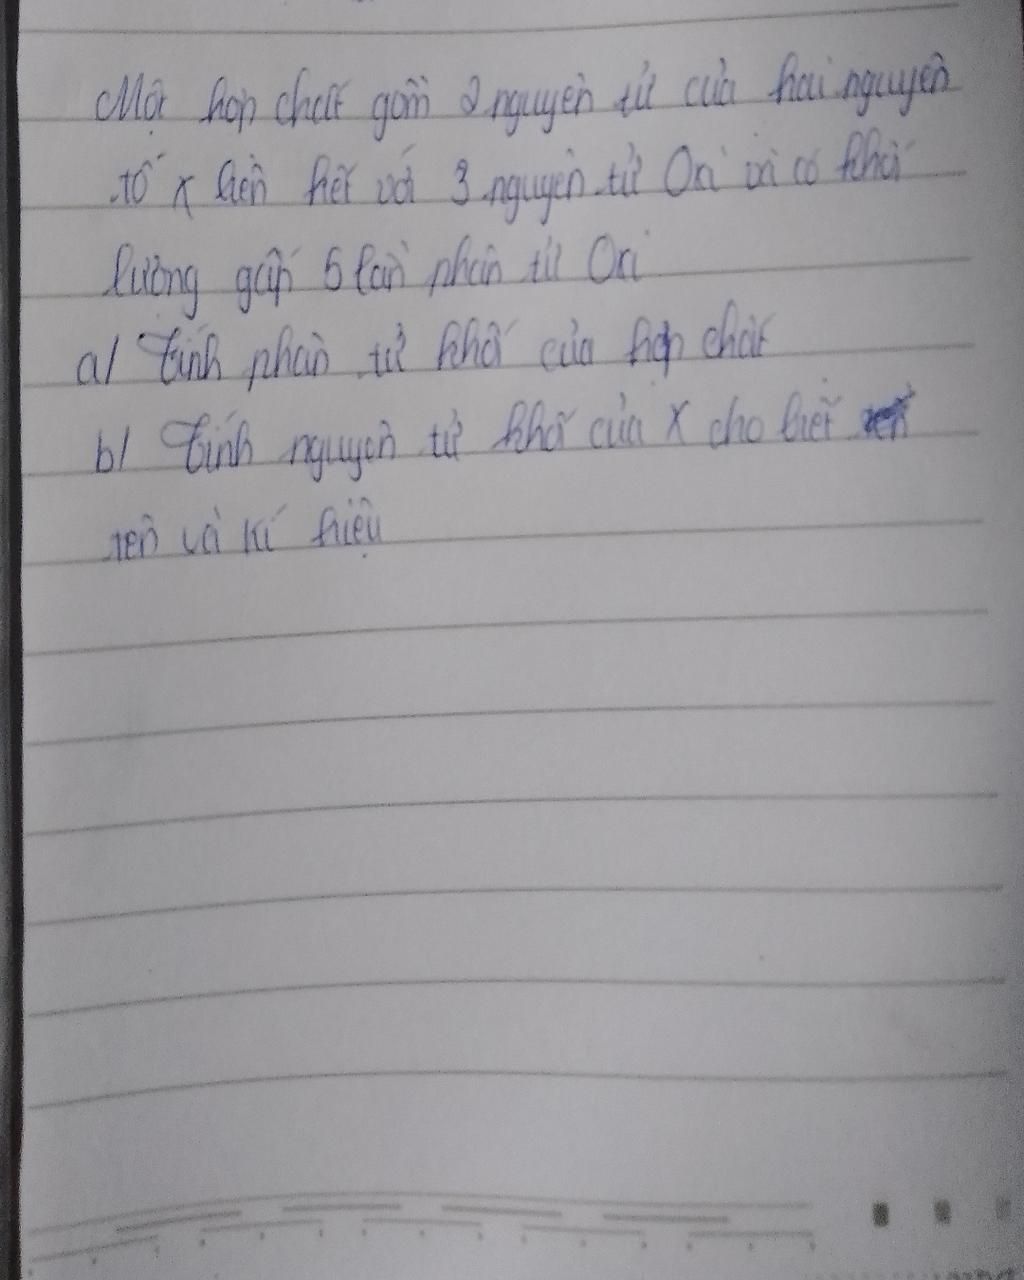 Một hợp chất gồm 2 nguyên tử của hai nguyên
tố x liên kết với 3 nguyên tử Oxi và có khối
lượng gấp 5 lần phân tử Oxi
a/ Tính phân tử khối của hợp chất
b/ Tính nguyên tử khối của X cho biết
tên và kí hiệu